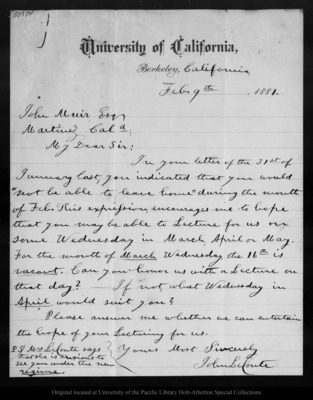 University of California,
Berkeley, California
Feb. 9th 1881.
John Muir Esq,
Martinez Cala.
My Dear Sir:
In your letter of the 31st of
January last, you indicated that you would
"not be able to leave home" during the month
of Feb. This expression, encourages me to hope
that you may be able to Lecture for us on
some Wednesday in March, April or May.
For the month of March, Wednesday the 16th is
vacant. Can you honor us with a Lecture on
that day? If not what Wednesday in
April would suit you?
Please answer me whether we can entertain
the hope of your Lecturing for us.
Yours Most Sincerely
John LeConte
P.S. Mrs LeConte says
that she is anxious to
see you under the new
regime.
Original located at University of the Pacific Library Holt-Atherton Special Collections